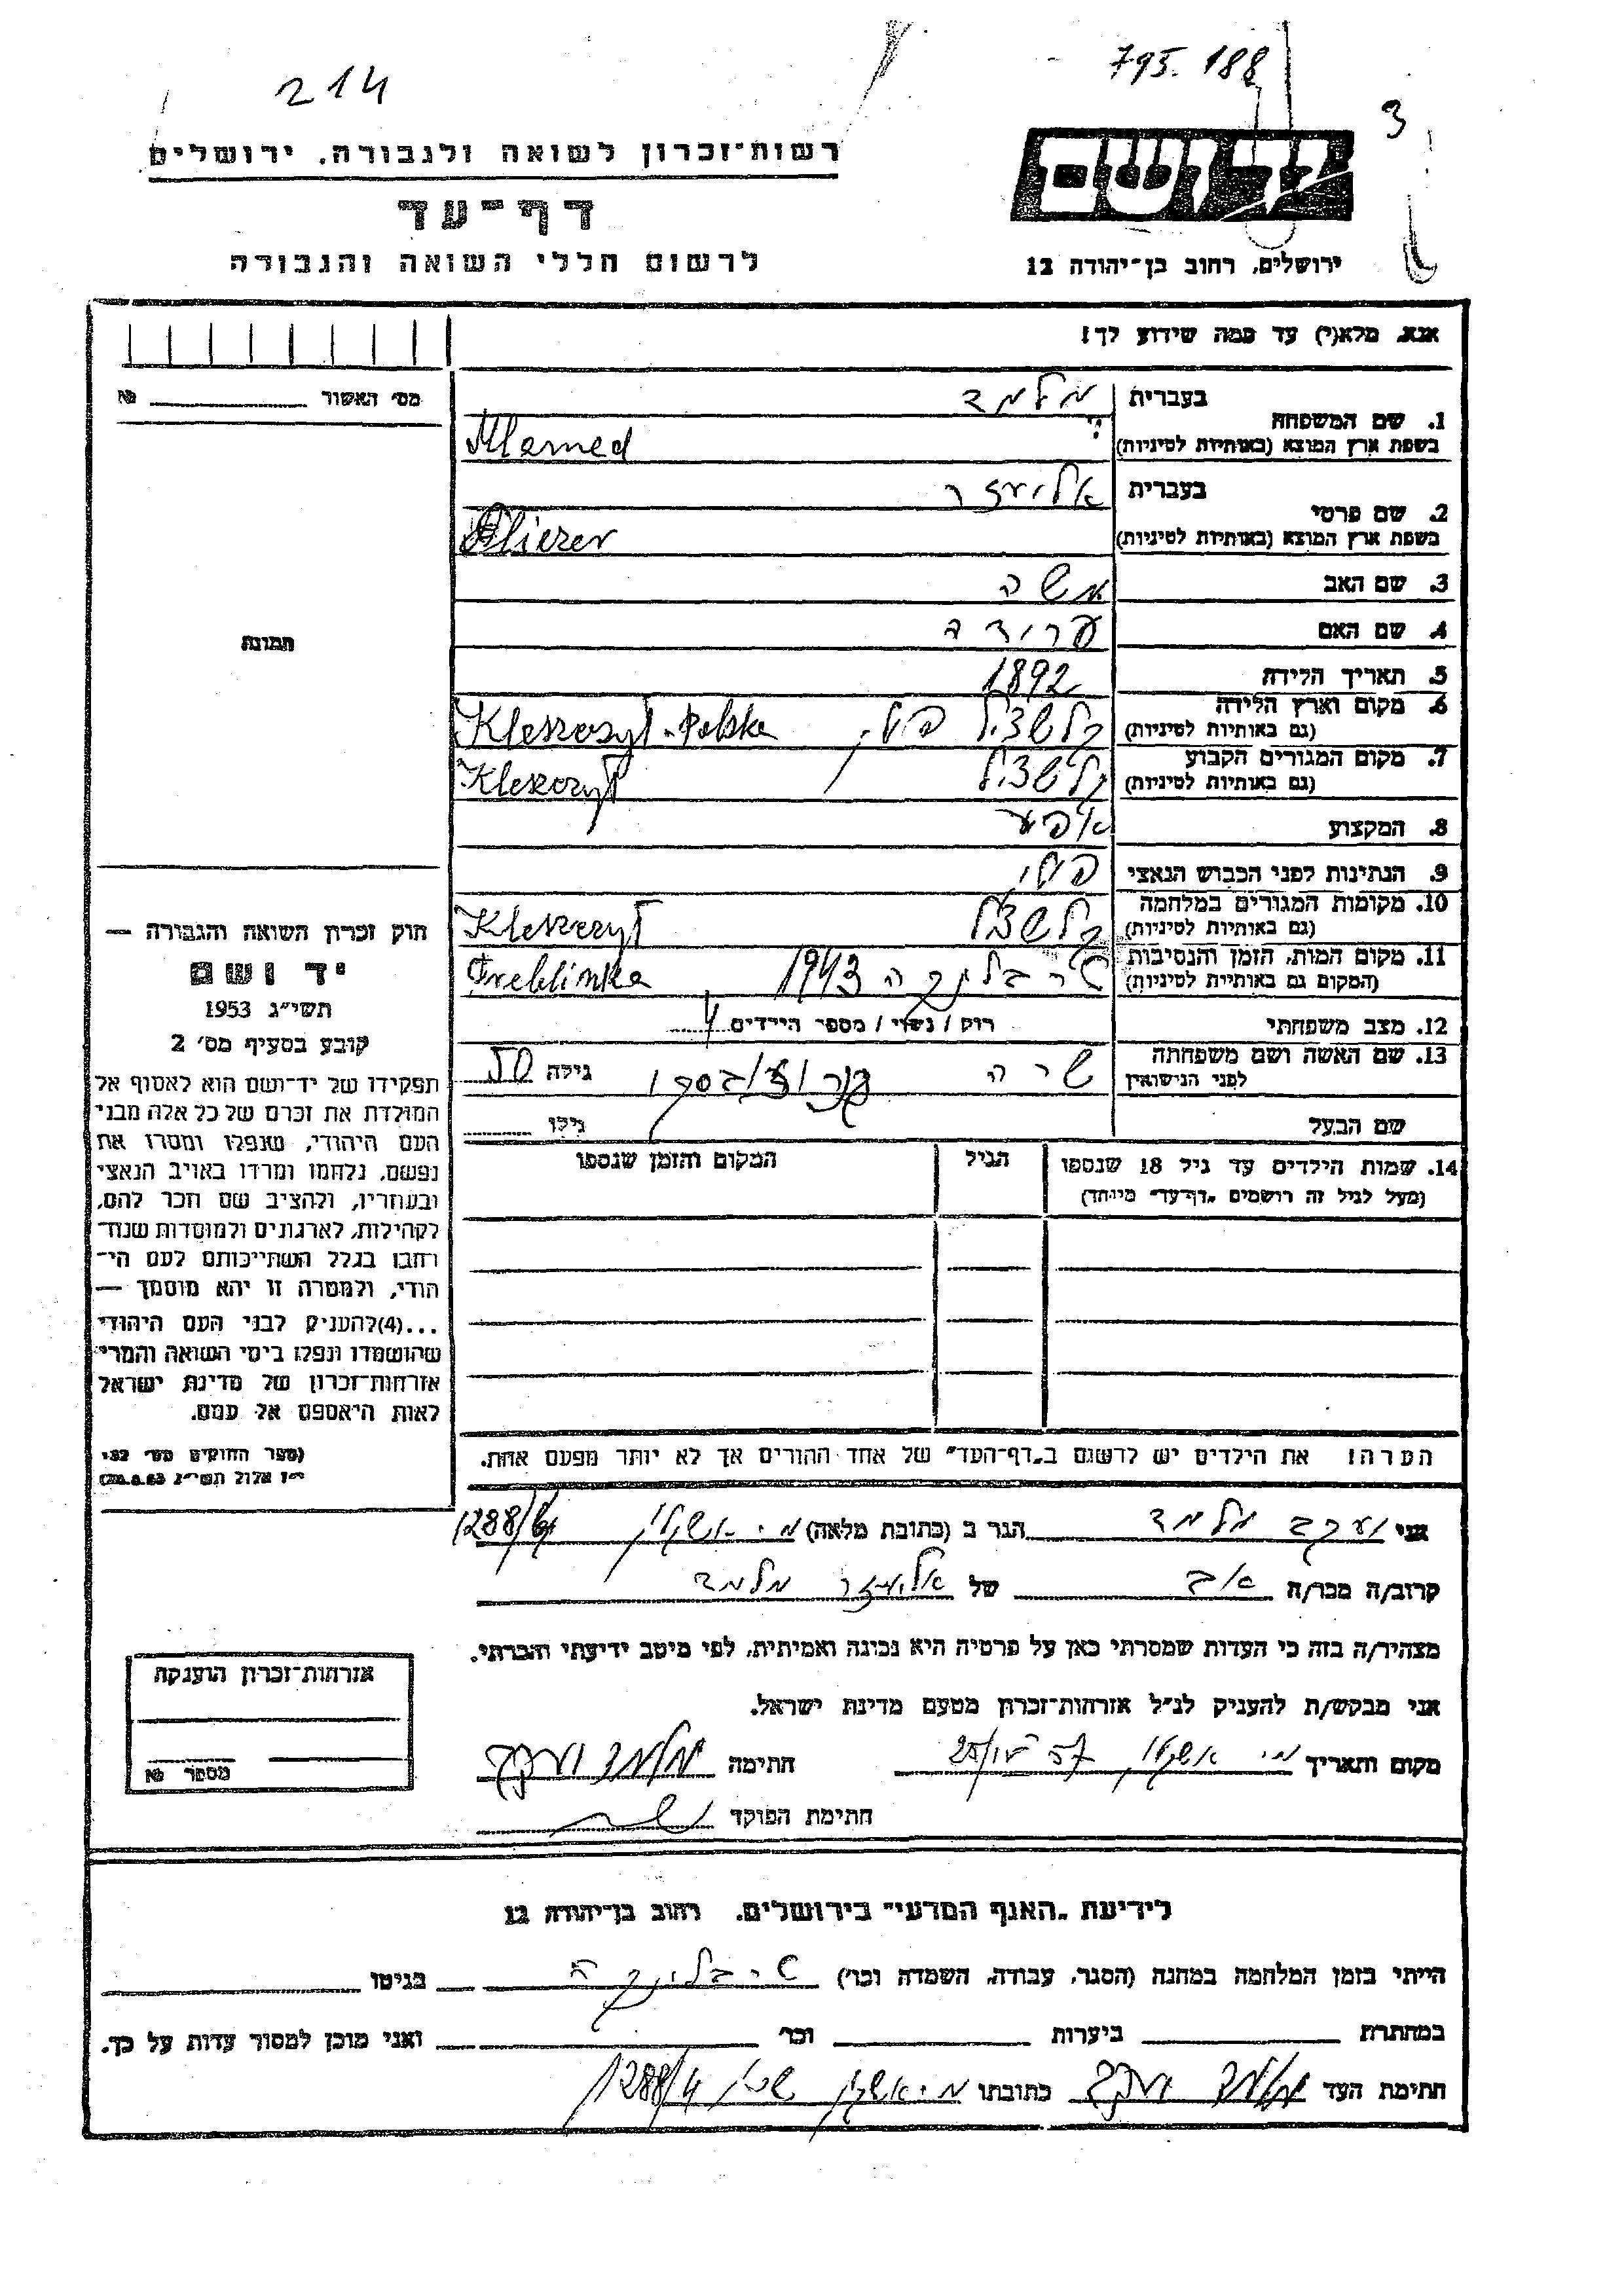 214
795.188
3
רשות־זכרון לשואה ולגבורה, ירושלים
יד ושם
דף־עד
לרשום חללי השואה והגבורה
ירושלים, רחוב בן־יהודה 12
אנא, מלא(י) עד כמה שידוע לך!
מס׳ האשור №
1. שם המשפחה
בעברית מלמד
בשפת ארץ המוצא (באותיות לטיניות) Mlamed
2. שם פרטי
בעברית אליעזר
בשפת ארץ המוצא (באותיות לטיניות) Eliezer
3. שם האב משה
4. שם האם
5. תאריך הלידה 1892
6. מקום וארץ הלידה
(גם באותיות לטיניות) Polska
7. מקום המגורים הקבוע
(גם באותיות לטיניות)
8. המקצוע אופה
9. הנתינות לפני הכבוש הנאצי
10. מקומות המגורים במלחמה
(גם באותיות לטיניות)
11. מקום המות, הזמן והנסיבות
(המקום גם באותיות לטיניות) טרבלינקה 1943 Treblinka
12. מצב משפחתי רווק / נשוי / מספר הילדים 4
13. שם האשה ושם משפחתה
לפני הנישואין שרה גילה 50
שם הבעל גילו
14. שמות הילדים עד גיל 18 שנספו
(מעל לגיל זה רושמים „דף־עד״ מיוחד)
הגיל
המקום והזמן שנספו
הערה! את הילדים יש לרשום ב„דף־העד״ של אחד ההורים אך לא יותר מפעם אחת.
תמונה
חוק זכרון השואה והגבורה —
יד ושם
תשי״ג 1953
קובע בסעיף מס׳ 2
תפקידו של יד־ושם הוא לאסוף אל
המולדת את זכרם של כל אלה מבני
העם היהודי, שנפלו ומסרו את
נפשם, נלחמו ומרדו באויב הנאצי
ובעוזריו, ולהציב שם וזכר להם,
לקהילות, לארגונים ולמוסדות שנח־
רבו בגלל השתייכותם לעם הי־
הודי, ולמטרה זו יהא מוסמך —
...(4)להעניק לבני העם היהודי
שהושמדו ונפלו בימי השואה והמרי
אזרחות־זכרון של מדינת ישראל
לאות היאספם אל עמם.
(ספר החוקים מס׳ 132
י״ז אלול תשי״ג 28.8.53)
אני יעקב מלמד הגר ב (כתובת מלאה)
קרוב/ה מכר/ה אב של אליעזר מלמד
מצהיר/ה בזה כי העדות שמסרתי כאן על פרטיה היא נכונה ואמיתית, לפי מיטב ידיעתי והכרתי.
אני מבקש/ת להעניק לנ״ל אזרחות־זכרון מטעם מדינת ישראל.
מקום ותאריך חתימה מלמד יעקב
חתימת הפוקד
אזרחות־זכרון הוענקה
מספר №
לידיעת „האגף המדעי״ בירושלים, רחוב בן־יהודה 12
הייתי בזמן המלחמה במחנה (הסגר, עבודה, השמדה וכו׳) טרבלינקה בגיטו
במחתרת ביערות וכו׳ ואני מוכן למסור עדות על כך.
חתימת העד מלמד יעקב כתובתו 1288/4